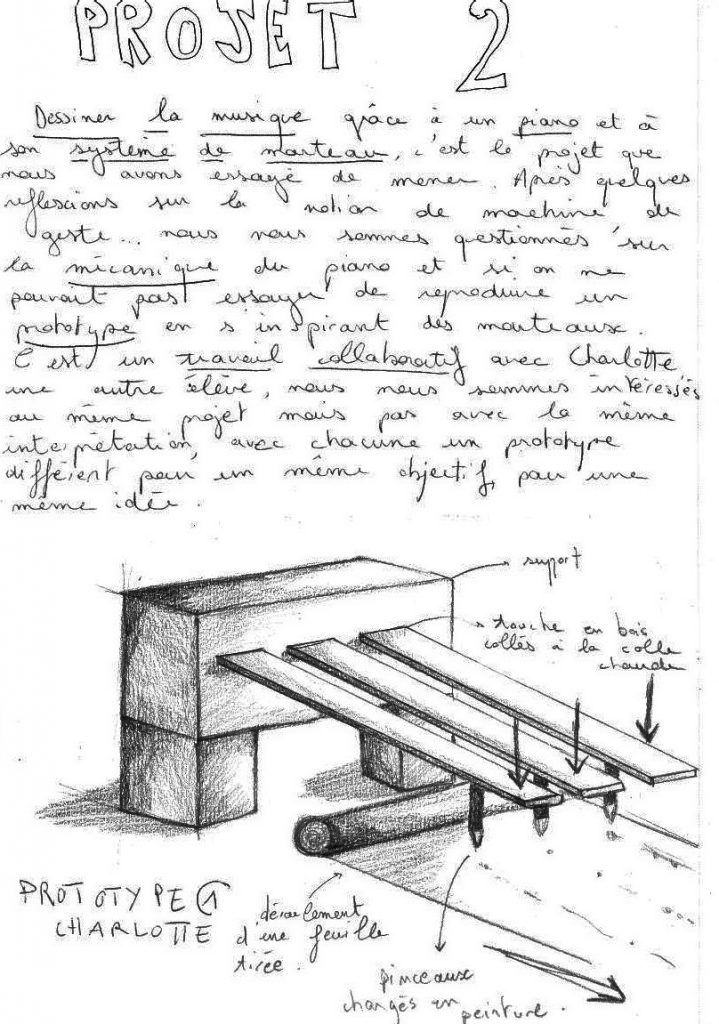 PROJET 2
Dessiner la musique grâce à un piano et à
son système de marteau, c'est le projet que
nous avons essayé de mener. Après quelques
réflexions sur la notion de machine de
geste... nous nous sommes questionnés sur
la mécanique du piano et si on ne
pouvait pas essayer de reproduire un
prototype en s'inspirant des marteaux.
C'est un travail collaboratif avec Charlotte,
une autre élève, nous nous sommes intéressés
au même projet mais pas avec la même
interprétation, avec chacune un prototype
différent pour un même objectif, pour une
même idée.
support
touche en bois
collés à la colle
chaude
PROTOTYPE 1
CHARLOTTE
déroulement
d'une feuille
tirée.
pinceaux
chargés en peinture.